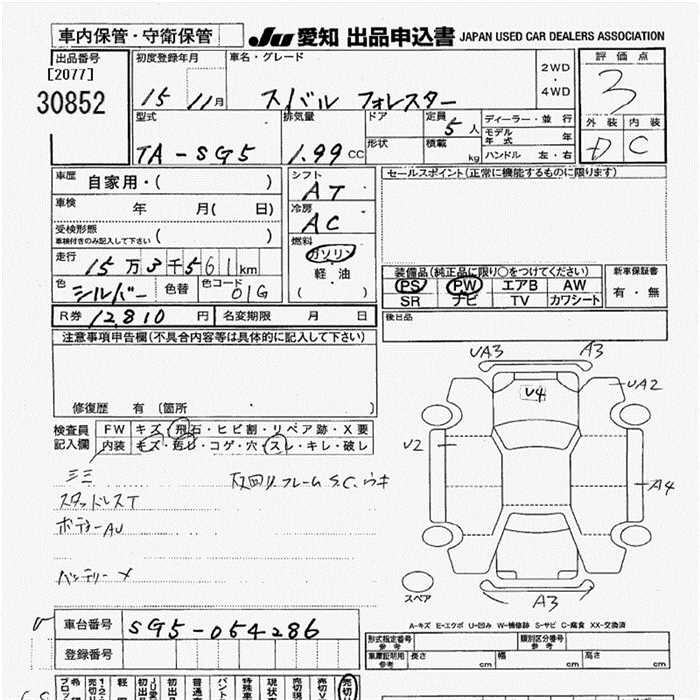 車内保管・守衛保管
Ju 愛知 出品申込書 JAPAN USED CAR DEALERS ASSOCIATION
出品番号
[2077]
30852
初度登録年月
15 11月
車名・グレード
スバル フォレスター
2WD
・
4WD
評価点
3
外装 内装
D C
型式
TA-SG5
排気量
1.99 cc
ドア
形状
定員
5人
積載
kg
ディーラー・並行
モデル年式 年
ハンドル 左・右
車歴
自家用・( )
車検
年 月( 日)
受検形態
車検付きのみ記入して下さい ( )
走行
15万3千561km
色
シルバー
色替
色コード
01G
シフト
AT
冷房
AC
燃料
ガソリン
軽・油
( )
セールスポイント(正常に機能するものに限ります)
装備品(純正品に限り○をつけてください)
PS PW エアB AW
SR ナビ TV カワシート
新車保証書
有・無
R券 12,810 円
名変期限 月 日
後日品
注意事項申告欄(不具合内容等は具体的に記入して下さい)
修復歴 有 (箇所 )
検査員記入欄
FW キズ・飛石・ヒビ割・リペア跡・X要
内装 キズ・汚レ・コゲ・穴・スレ・キレ・破レ
スタッドレスT
ボデーAU
バッテリーメ
UA3 A3
U4
UA2
U2
A4
A3
スペア
A-キズ E-エクボ U-凹み W-補修跡 S-サビ C-腐食 XX-交換済
車台番号
SG5-054286
登録番号
形式指定番号
参考
類別区分番号
参考
車庫証明用
参考
長さ cm 幅 cm 高さ cm